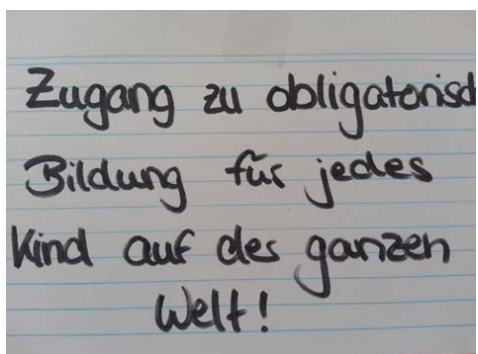 Zugang zu obligatorisch
Bildung für jedes
Kind auf der ganzen
Welt!